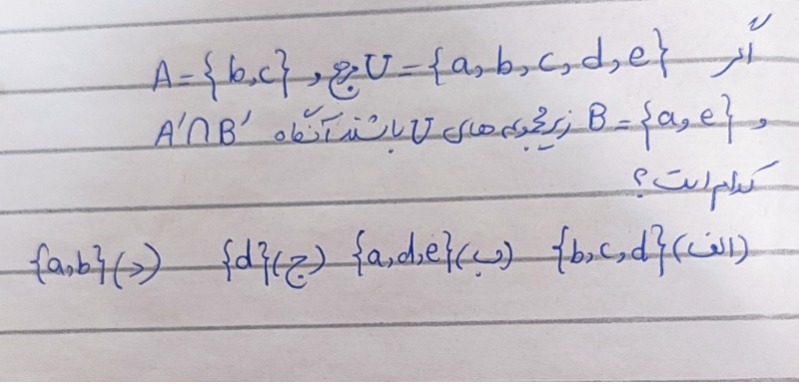 اگر U={a,b,c,d,e} مرجع, A={b,c}
و B={a,e} زیرمجموعه‌های U باشند آنگاه A′∩B′
کدام است؟
(الف) {b,c,d} (ب) {a,d,e} (ج) {d} (د) {a,b}